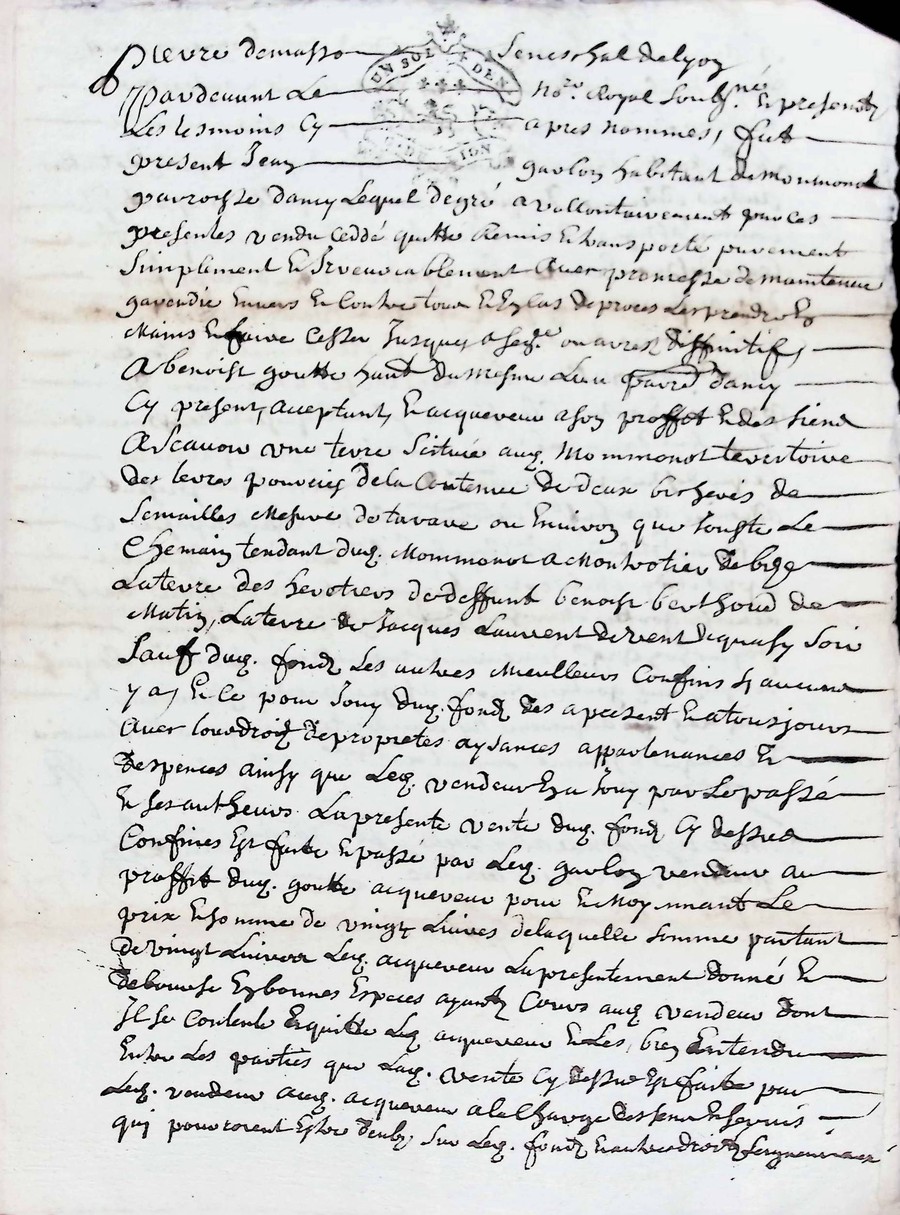 UN SOL DEN
ION
Pierre demasso Seneschal delyon
Pardevant Le No.re Royal soubs.né Et presents
Les tesmoins Cy apres nommes, fut
present Jean garlon habitant de Mommonot
parroisse dancy Lequel degré a vollontairement par ces
presentes vendu ceddé quitte Remis Et transporté purement
simplement Et Irrevocablement Avec promesse de maintenir
garendie Envers Et Contre tous Et En Cas de proces Les prendre En
Mains Et faire Cesser Jusques a sen.ce ou arrest diffinitif,
A benoist goutte habt. du mesme Lieu parred dancy
Cy present, acceptant, Et acquereur a son proffit Et des siens
A Scavoir une terre Scituée aud. Mommonot territoire
des terres de la Contenue de deux bichevis de
Semailles Mesure de tarare ou Environ que Jouste Le
Chemain tendant dud. Mommonot a Montrotier de bize
La terre des herotiers de deffunt benoist berthoud de
Matin, La terre de Jacques Laurent de vent de quasy soir
Sauf dud. fond Les autres Meilleurs Confins sy aucuns
y a, Et Ce pour Jouy dud. fond des a present Et a tousjours
Avec tous droid de propretes aysances appartenances Et
despences ainsy que Led. vendeur En a Jouy par Le passé
Et ses autheurs La presente vente dud. fond Cy dessus
Confines Est faite Et passé par Led. garlon vendeur au
proffit dud. goutte acquereur pour Et Moyennant Le
prix Et somme de vingt Livres de laquelle somme partant
de vingt Livres Led. acquereur La presentement donné Et
debource En bonnes Especes ayant Cours aud. vendeur dont
Il se Contente Et quitte Led acquereur Et Les, bien Entendu
Entre Les parties que Lad. vente Cy dessus Est faite par
Led. vendeur aud. acquereur a la Charge des Et servis
qui pourroient Estre deubs sur Led. fond Et autres droits seigneuriaux